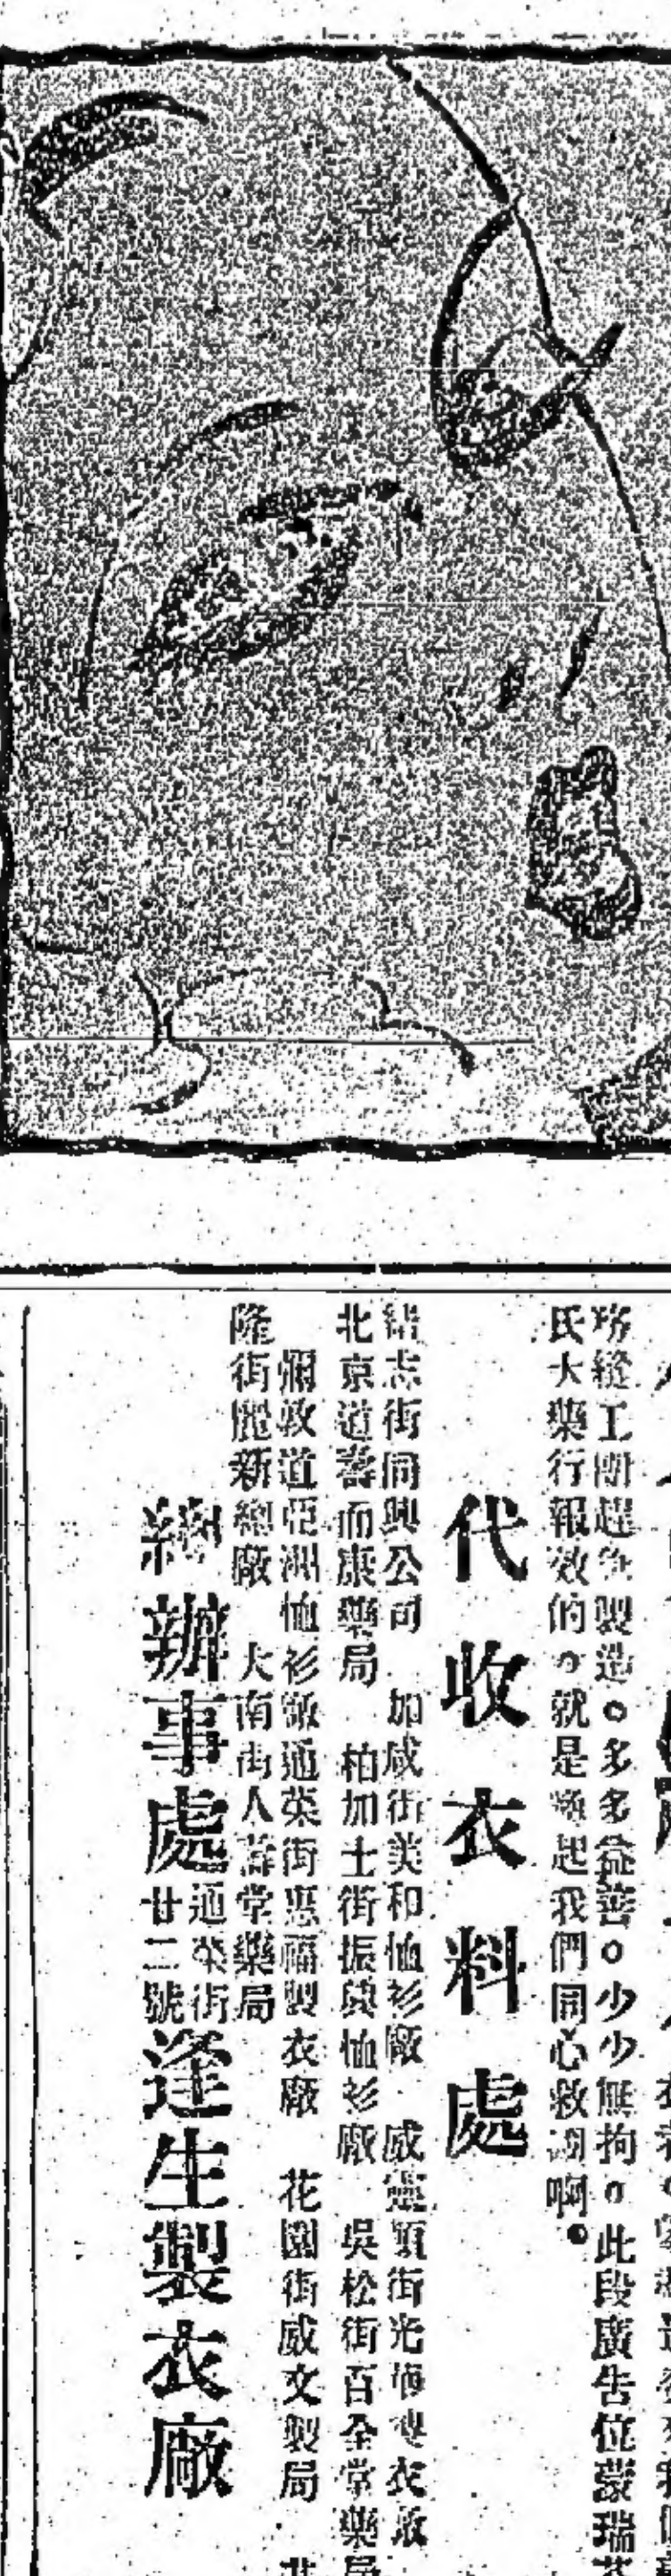 縫工團趕製造。多多益善。少少無拘。此段廣告位蒙瑞
氏大藥行報效的。就是想起我們同心救國啊。
代收衣料處
志街同興公司　加咸街美和恤衫廠　威靈頓街光華製衣廠
北京道壽而康藥局　柏加士街振興恤衫廠　吳松街百全堂藥局
彌敦道亞洲恤衫廠　通菜街惠福製衣廠　花園街威文製局
隆街麗新總廠　大南街人壽堂藥局
總辦事處　通菜街廿二號　逢生製衣廠